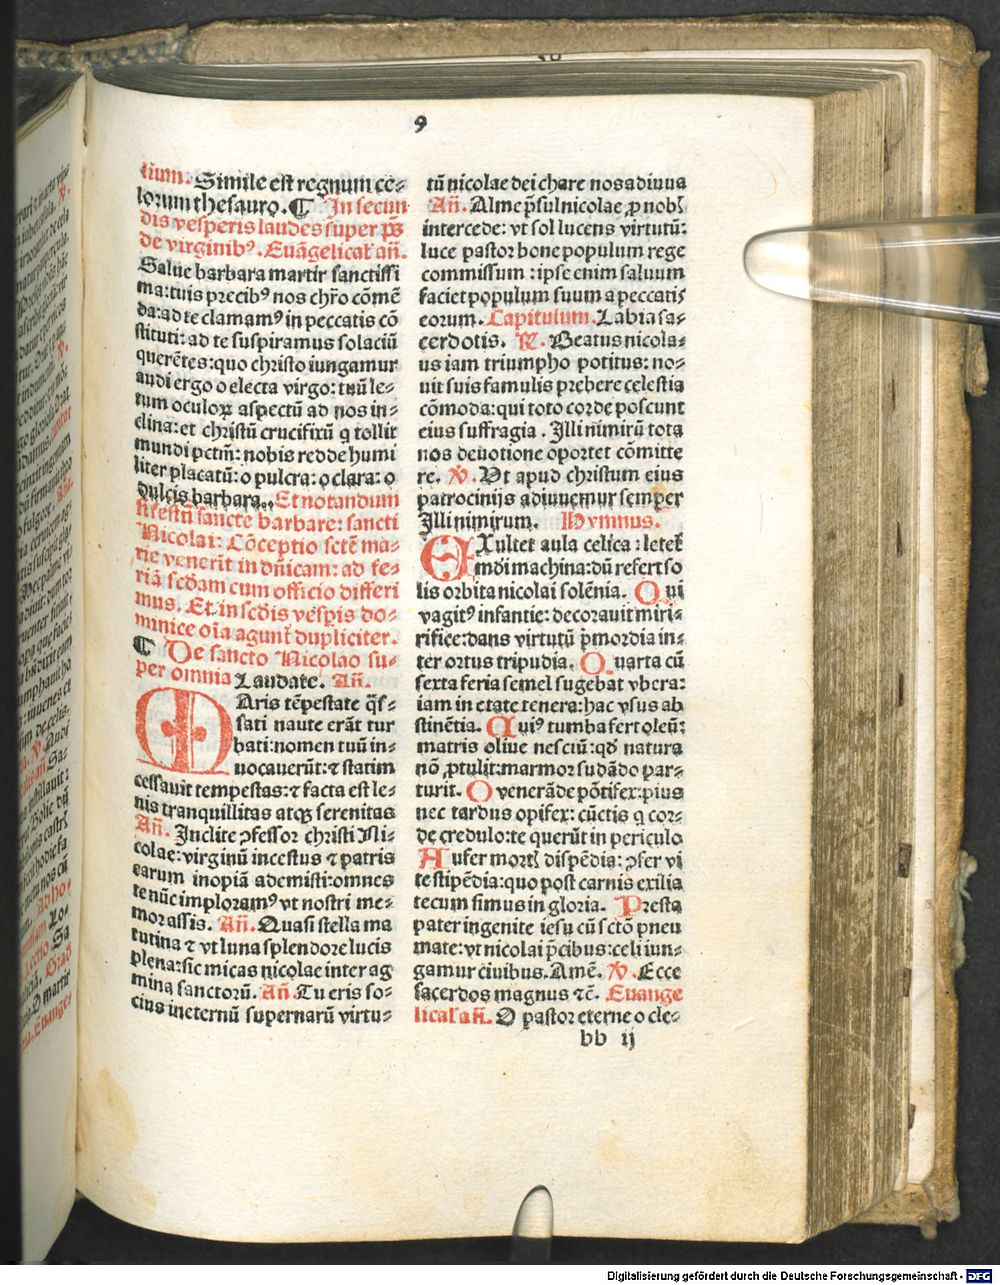 9
tium. Simile est regnum ce⸗
lorum thesauro. ¶ In secun
dis vesperis laudes super ps̄
de virginibꝰ. Euāgelical̓ an̄.
Salue barbara martir sanctissi
ma: tuis precibꝰ nos chr̄o cōmē
da: ad te clamamꝰ in peccatis cō
stituti: ad te suspiramus solaciū
querētes: quo christo iungamur
audi ergo o electa virgo: tuū le⸗
tum oculoꝝ aspectū ad nos in⸗
clina: et christū crucifixū q tollit
mundi pctm̄: nobis redde humi
liter placatū: o pulcra: o clara: o
dulcis barbara.. Et notandum
si festū sancte barbare: sancti
Nicolai: Cōceptio scte̅ ma⸗
rie venerit in dn̄icam: ad fe⸗
riā scd̄am cum officio differi
mus. Et in scd̄is vesp̄is do⸗
minice oīa agunt̄ dupliciter.
¶ De sancto Nicolao su⸗
per omnia Laudate. An̄.
MAris tēpestate q̄s⸗
sati naute erāt tur
bati: nomen tuū in⸗
uocauerūt: ⁊ statim
cessauit tempestas: ⁊ facta est le⸗
nis tranquillitas atqꝫ serenitas
An̄. Inclite ꝯfessor christi Ni⸗
colae: virginū incestus ⁊ patris
earum inopiā ademisti: omnes
te nūc imploramꝰ vt nostri me⸗
mor assis. An̄. Quasi stella ma
tutina ⁊ vt luna splendore lucis
plena: sic micas nicolae inter ag
mina sanctorū. An̄ Tu eris so⸗
cius ineternū supernarū virtu⸗
tū nicolae dei chare nos adiuua
An̄. Alme p̄sul nicolae ꝓ nobꝭ
intercede: vt sol lucens virtutū:
luce pastor bone populum rege
commissum: ipse enim saluum
faciet populum suum a peccatis
eorum. Capitulum. Labia sa⸗
cerdotis. ℟. Beatus nicola⸗
us iam triumpho potitus: no⸗
uit suis famulis prebere celestia
cōmoda: qui toto corde poscunt
eius suffragia. Illi nimirū tota
nos deuotione oportet cōmitte
re. ℣. Vt apud christum eius
patrocinijs adiuuemur semper
Illi nimirum. Hymnus.
EXultet aula celica: letet̄
mdi machina: dū refert so
lis orbita nicolai solēnia. Qui
vagitꝰ infantie: decorauit miri⸗
rifice: dans virtutū p̄mordia in⸗
ter ortus tripudia. Quarta cū
sexta feria semel sugebat vbera:
iam in etate tenera: hac vsus ab
stinētia. Quiꝰ tumba fert oleū:
matris oliue nesciū: qd̄ natura
nō ꝓtulit: marmor sudādo par⸗
turit. O venerāde pōtifex: pius
nec tardus opifex: cūctis q cor⸗
de credulo: te querūt in periculo
Aufer mortꝭ dispēdia: ꝯfer vi
te stipēdia: quo post carnis exilia
tecum simus in gloria. Presta
pater ingenite iesu cū sctō pneu
mate: vt nicolai p̄cibus: celi iun⸗
gamur ciuibus. Amē. ℣. Ecce
sacerdos magnus ⁊c̄. Euange
lical̓ an̄. O pastor eterne o cle⸗
bb ij
Digitalisierung gefördert durch die Deutsche Forschungsgemeinschaft - DFG